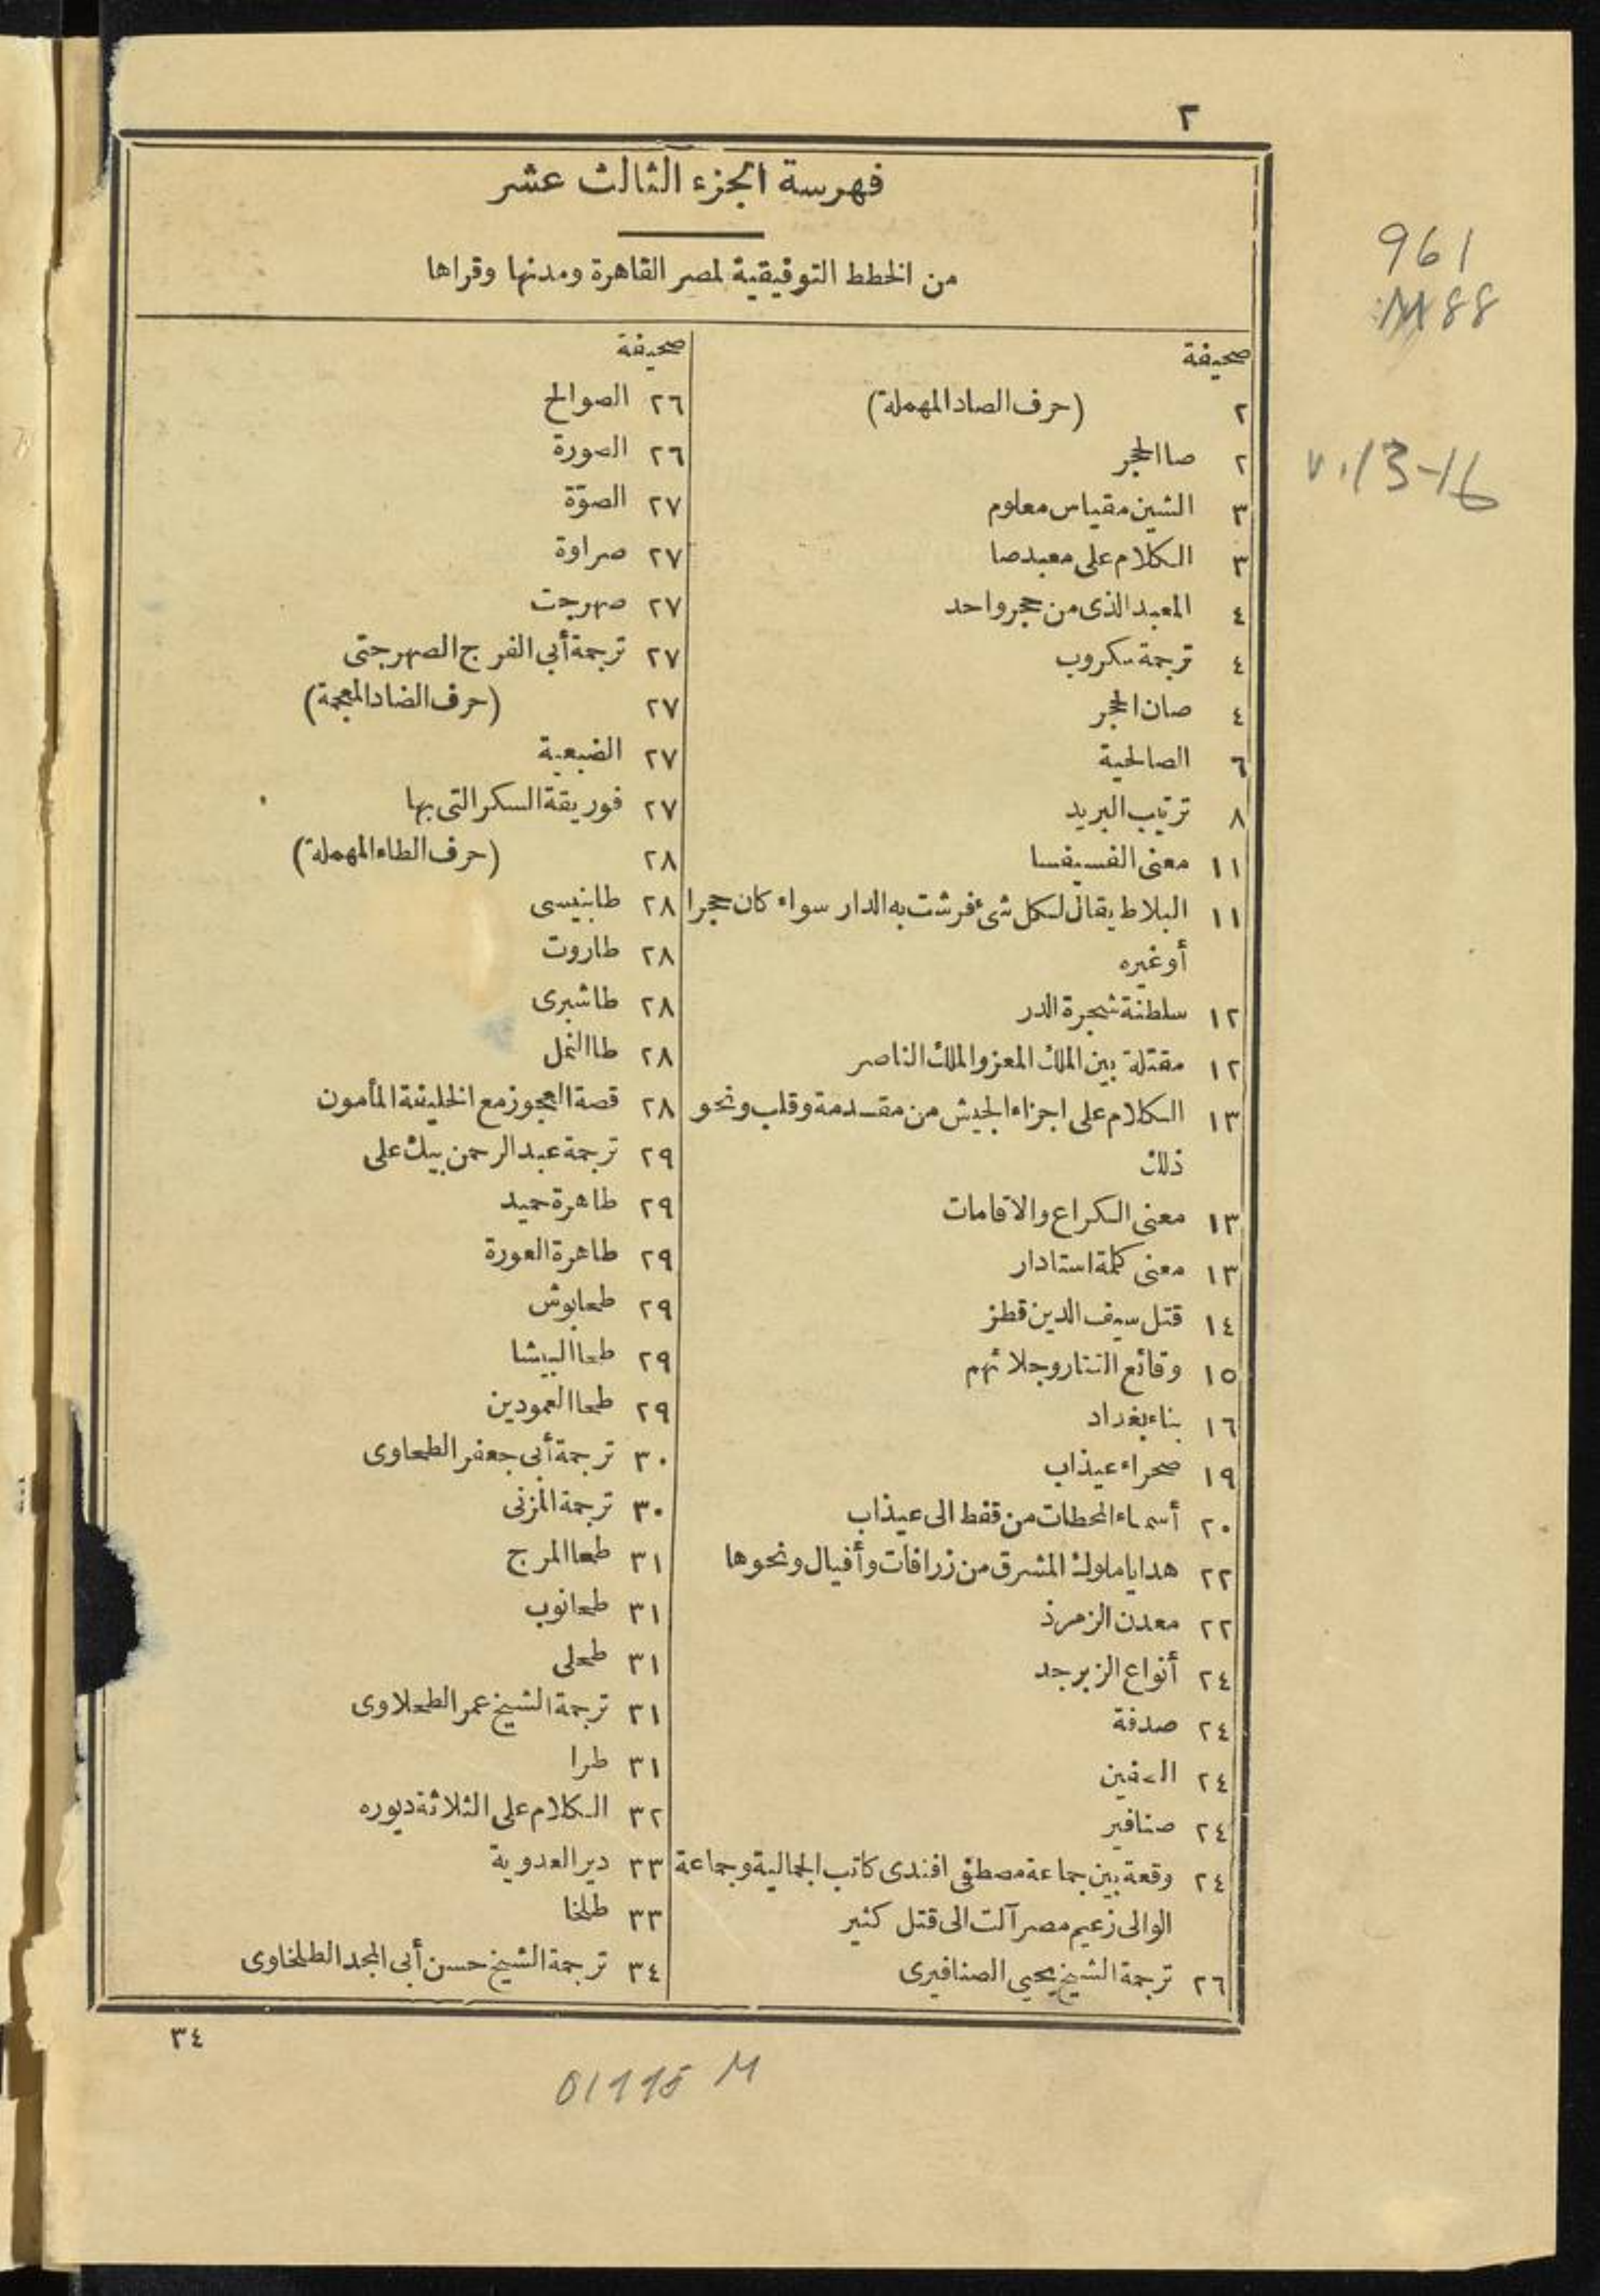 ٢
فهرسة الجزء الثالث عشر
من الخطط التوفيقية لمصر القاهرة ومدنها وقراها
صحيفة
٢ (حرف الصاد المهملة)
٢ صا الحجر
٣ الشين مقياس معلوم
٣ الكلام على معبد صا
٤ المعبد الذى من حجر واحد
٤ ترجمة سكروب
٤ صان الحجر
٦ الصالحية
٨ ترتيب البريد
١١ معنى الفسيفسا
١١ البلاط يقال لكل شئ فرشت به الدار سواء كان حجرا
أو غيره
١٢ سلطنة شجرة الدر
١٢ مقتلة بين الملك المعز والملك الناصر
١٣ الكلام على اجزاء الجيش من مقدمة وقلب ونحو
ذلك
١٣ معنى الكراع والاقامات
١٣ معنى كلمة استادار
١٤ قتل سيف الدين قطز
١٥ وقائع التتار وجلائهم
١٦ بناء بغداد
١٩ صحراء عيذاب
٢٠ أسماء المحطات من قفط الى عيذاب
٢٢ هدايا ملوك المشرق من زرافات وأفيال ونحوها
٢٢ معدن الزمرذ
٢٤ أنواع الزبرجد
٢٤ صدفة
٢٤
٢٤ صنافير
٢٤ وقعة بين جماعة مصطفى افندى كاتب الجمالية وجماعة
الوالى زعيم مصر آلت الى قتل كثير
٢٦ ترجمة الشيخ يحيى الصنافيرى
صحيفة
٢٦ الصوالح
٢٦ الصورة
٢٧ الصوّة
٢٧ صراوة
٢٧ صهرجت
٢٧ ترجمة أبي الفرج الصهرجتى
٢٧ (حرف الضاد المعجمة)
٢٧ الضبعية
٢٧ فوريقة السكر التى بها
٢٨ (حرف الطاء المهملة)
٢٨ طابنيسى
٢٨ طاروت
٢٨ طاشبرى
٢٨ طا النمل
٢٨ قصة العجوز مع الخليفة المأمون
٢٩ ترجمة عبد الرحمن بيك على
٢٩ طاهرة حميد
٢٩ طاهرة العورة
٢٩ طحابوش
٢٩ طحا البيشا
٢٩ طحا العمودين
٣٠ ترجمة أبى جعفر الطحاوى
٣٠ ترجمة المزنى
٣١ طحا المرج
٣١ طحانوب
٣١ طحلى
٣١ ترجمة الشيخ عمر الطحلاوى
٣١ طرا
٣٢ الكلام على الثلاثة ديوره
٣٣ دير العدوية
٣٣ طلخا
٣٤ ترجمة الشيخ حسن أبى المجد الطلخاوى
٣٤
961
M88
v.13-16